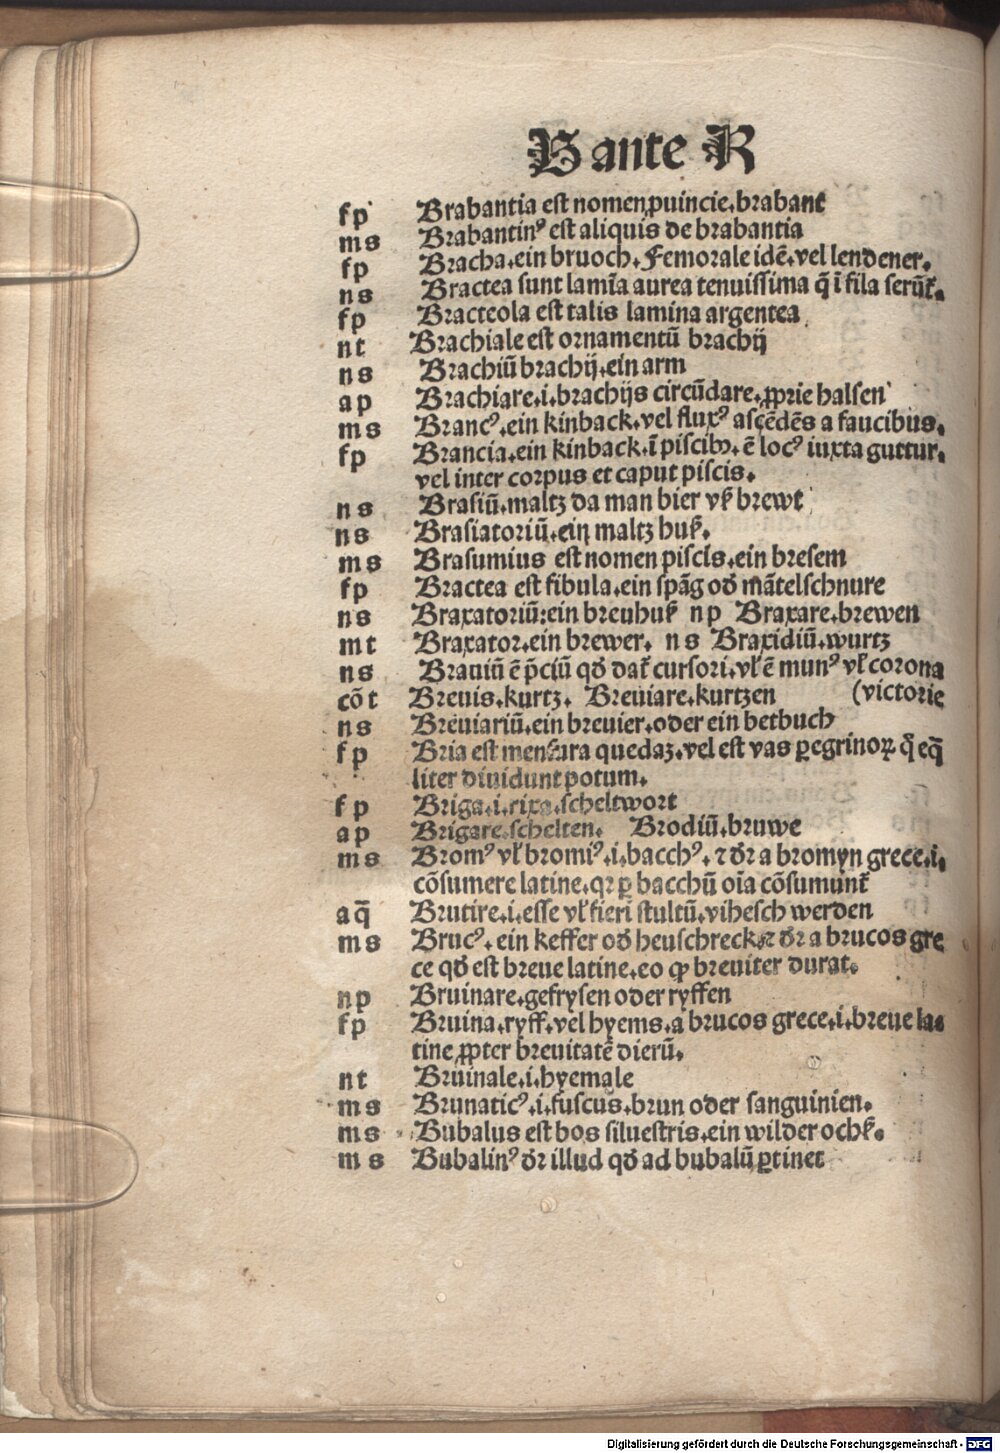 B ante R
fp Brabantia est nomen ꝓuincie.brabant
ms Brabantinꝰ est aliquis de brabantia
fp Bracha.ein bruoch.Femorale idē.vel lendener.
ns Bractea sunt lamīa aurea tenuissima q̄ ī fila serūt᷑.
fp Bracteola est talis lamina argentea
nt Brachiale est ornamentū brachij
ns Brachiū brachij.ein arm
ap Brachiare.i.brachijs circūdare.ꝓprie halsen
ms Brancꝰ.ein kinback.vel fluxꝰ ascēdēs a faucibus.
fp Brancia.ein kinback.ī piscibꝰ.ē locꝰ iuxta guttur.
vel inter corpus et caput piscis.
ns Brasiū.maltz da man bier vß brewt
ns Brasiatoriū.ein maltz huß.
ms Brasumius est nomen piscis.ein bresem
fp Bractea est fibula.ein spāg od̓ mātelschnure
ns Braxatoriū:ein breuhuß np Braxare.brewen
mt Braxator.ein brewer. ns Braxidiū.wurtz
ns Brauiū ē p̄ciū qd̓ dat᷑ cursori.vl̓ ē munꝰ vl̓ corona
cōt Breuis.kurtz. Breuiare.kurtzen (victorie
ns Breuiariū.ein breuier.oder ein betbuch
fp Bria est mensura quedaꝫ.vel est vas ꝑegrinoꝝ q̄ eq̄
liter diuidunt potum.
fp Briga.i.rixa.scheltwort
ap Brigare.schelten. Brodiū.bruwe
ms Bromꝰ vl̓ bromiꝰ.i.bacchꝰ.⁊ d̓r a bromyn grece.i.
cōsumere latine.qꝛ ꝑ bacchū oīa cōsumunt᷑
aq̄ Brutire.i.esse vl̓ fieri stultū.vihesch werden
ms Brucꝰ.ein keffer od̓ heuschreck.⁊ d̓r a brucos gre
ce qd̓ est breue latine.eo ꝙ breuiter durat.
np Bruinare.gefrysen oder ryffen
fp Bruina.ryff.vel hyems.a brucos grece.i.breue la⸗
tine ꝓpter breuitatē dierū.
nt Bruinale.i.hyemale
ms Brunaticꝰ.i.fuscus.brun oder sanguinien.
ms Bubalus est bos siluestris.ein wilder ochß.
ms Bubalinꝰ d̓r illud qd̓ ad bubalū ꝑtinet
Digitalisierung gefördert durch die Deutsche Forschungsgemeinschaft - DFG